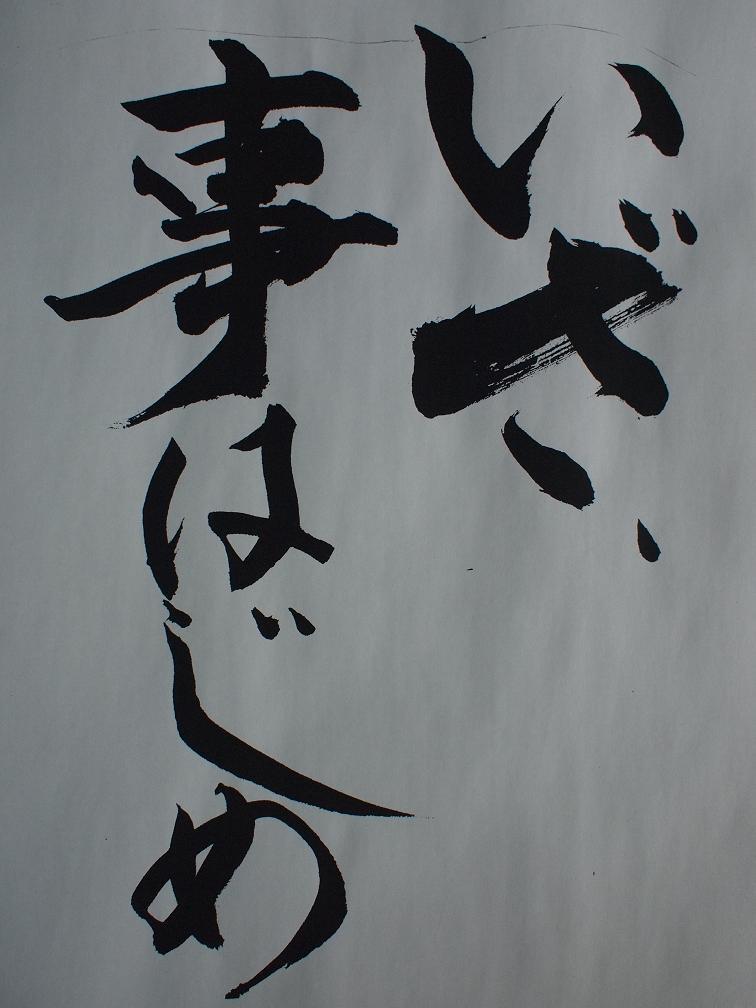 いざ、
事はじめ